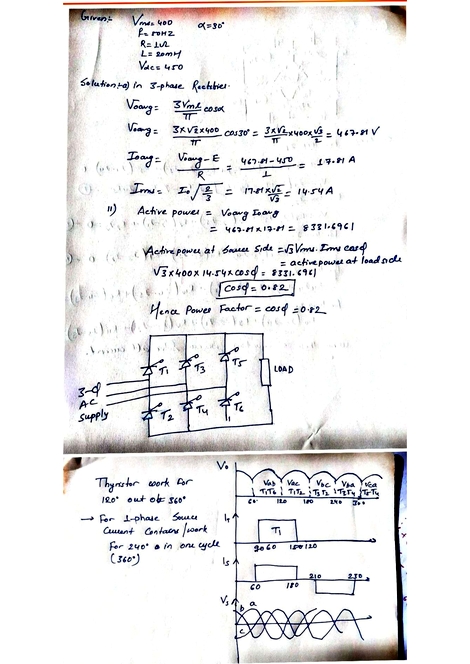 Given:- Vms = 400 α = 30°
f = 50HZ
R = 1Ω
L = 20mH
Vdc = 450
Solution:-a) in 3-phase Rectifier.
Voavg = 3Vml/π cosα
Voavg = 3×√2×400/π cos30° = 3×√2/π ×400×√3/2 = 467.81 V
Ioavg = Voavg - E/R = 467.81-450/1 = 17.81 A
Irms = Io√2/3 = 17.81×√2/√3 = 14.54 A
11) Active power = Voavg Ioavg
= 467.81 × 17.81 = 8331.6961
Active power at Source Side = √3 Vrms. Irms cosϕ
= active power at load side
√3 × 400 × 14.54 × cosϕ = 8331.6961
cosϕ = 0.82
Hence Power Factor = cosϕ = 0.82
T1 T3 T5
LOAD
3-ϕ
AC
Supply
T2 T4 T6
Thyristor work for
120° out of 360°
→ For 1-phase Source
Current Contains/work
For 240° in one cycle
(360°)
Vo
Vab Vac Vbc Vba Vca
T1T6 T1T2 T3T2 T3T4 T5T4
60 120 180 240 300
IT
T1
30 60 150 120
Is
60 180 210 230
Vs
b a
c